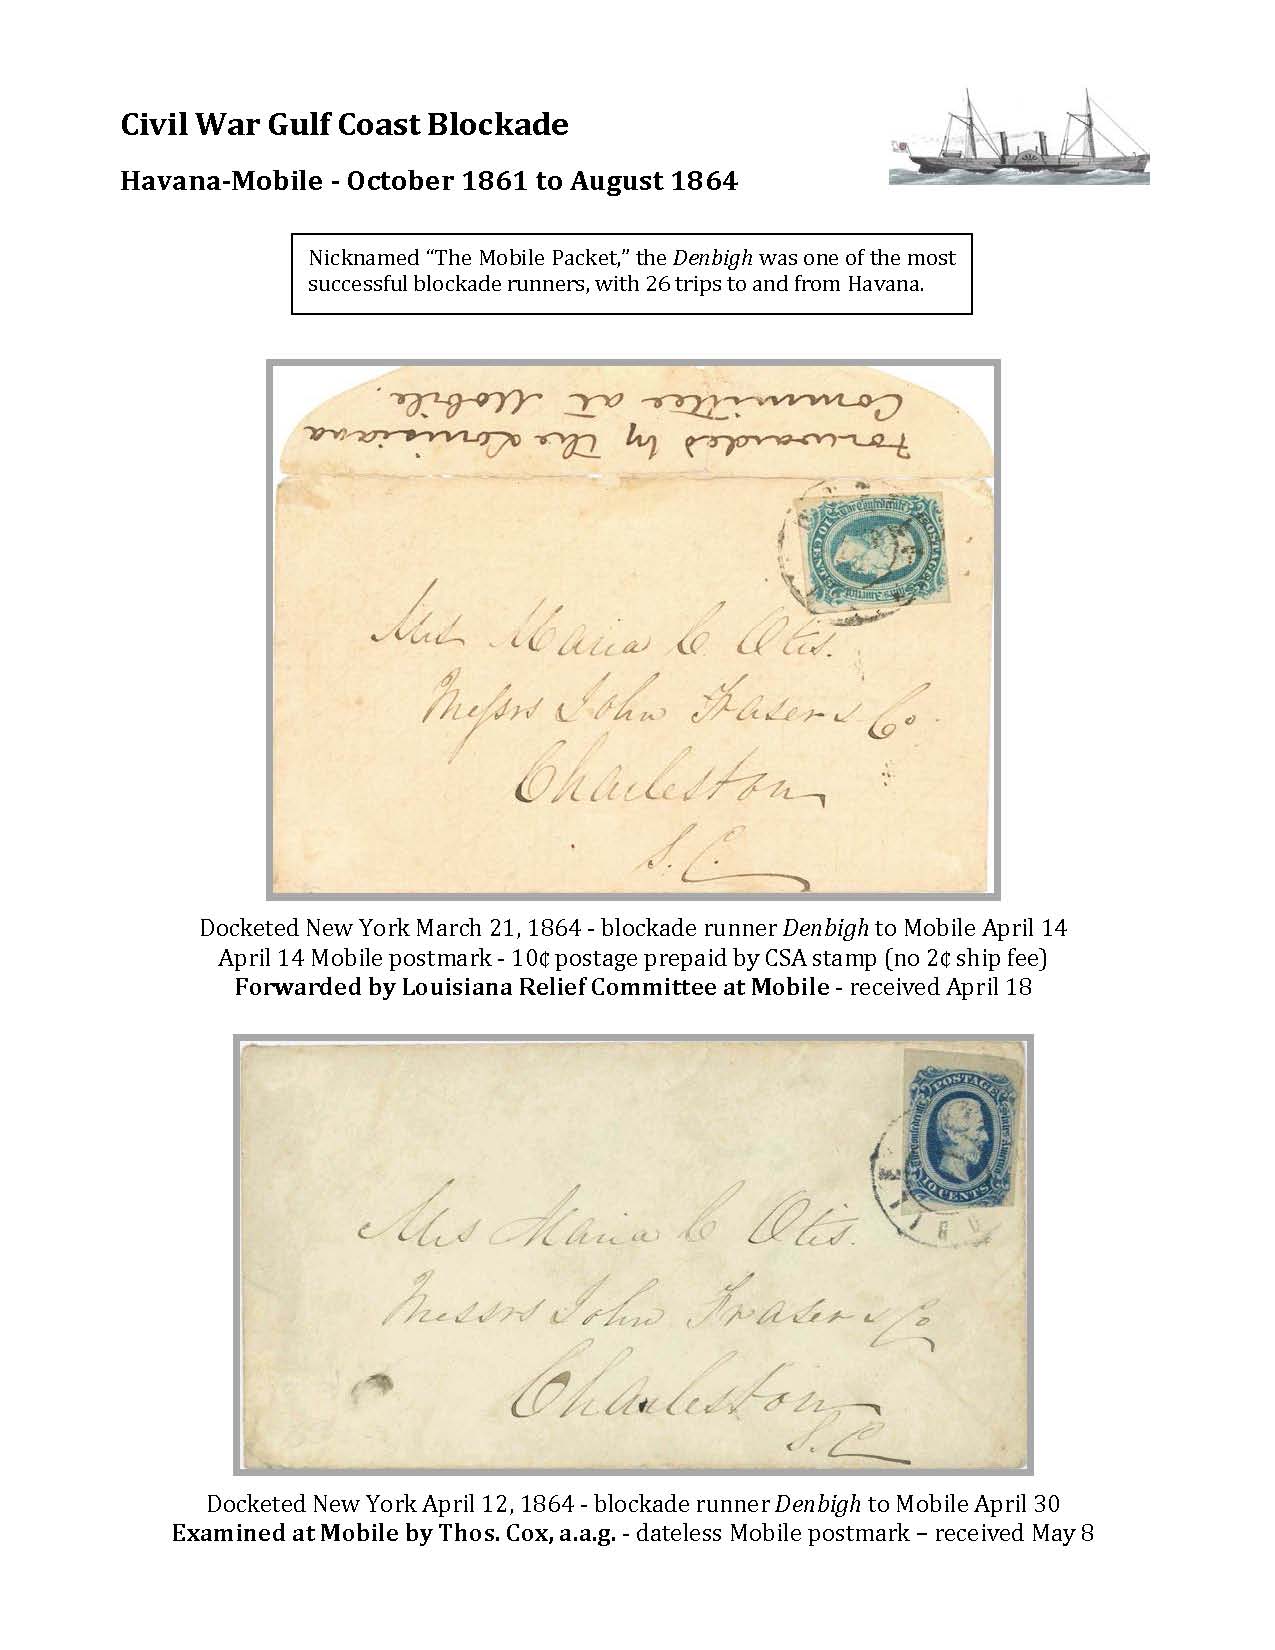 Civil War Gulf Coast Blockade
Havana-Mobile - October 1861 to August 1864
Nicknamed “The Mobile Packet,” the Denbigh was one of the most
successful blockade runners, with 26 trips to and from Havana.
Forwarded by the Louisiana
Committee at Mobile.
POSTAGE
The Confederate
States America
10 CENTS
Mrs Maria C Otis.
Messrs John Fraser & Co.
Charleston
S. C.
Docketed New York March 21, 1864 - blockade runner Denbigh to Mobile April 14
April 14 Mobile postmark - 10¢ postage prepaid by CSA stamp (no 2¢ ship fee)
Forwarded by Louisiana Relief Committee at Mobile - received April 18
POSTAGE
The Confederate
States America
10 CENTS
Mrs Maria C Otis.
Messrs John Fraser & Co
Charleston
S. C
Docketed New York April 12, 1864 - blockade runner Denbigh to Mobile April 30
Examined at Mobile by Thos. Cox, a.a.g. - dateless Mobile postmark – received May 8